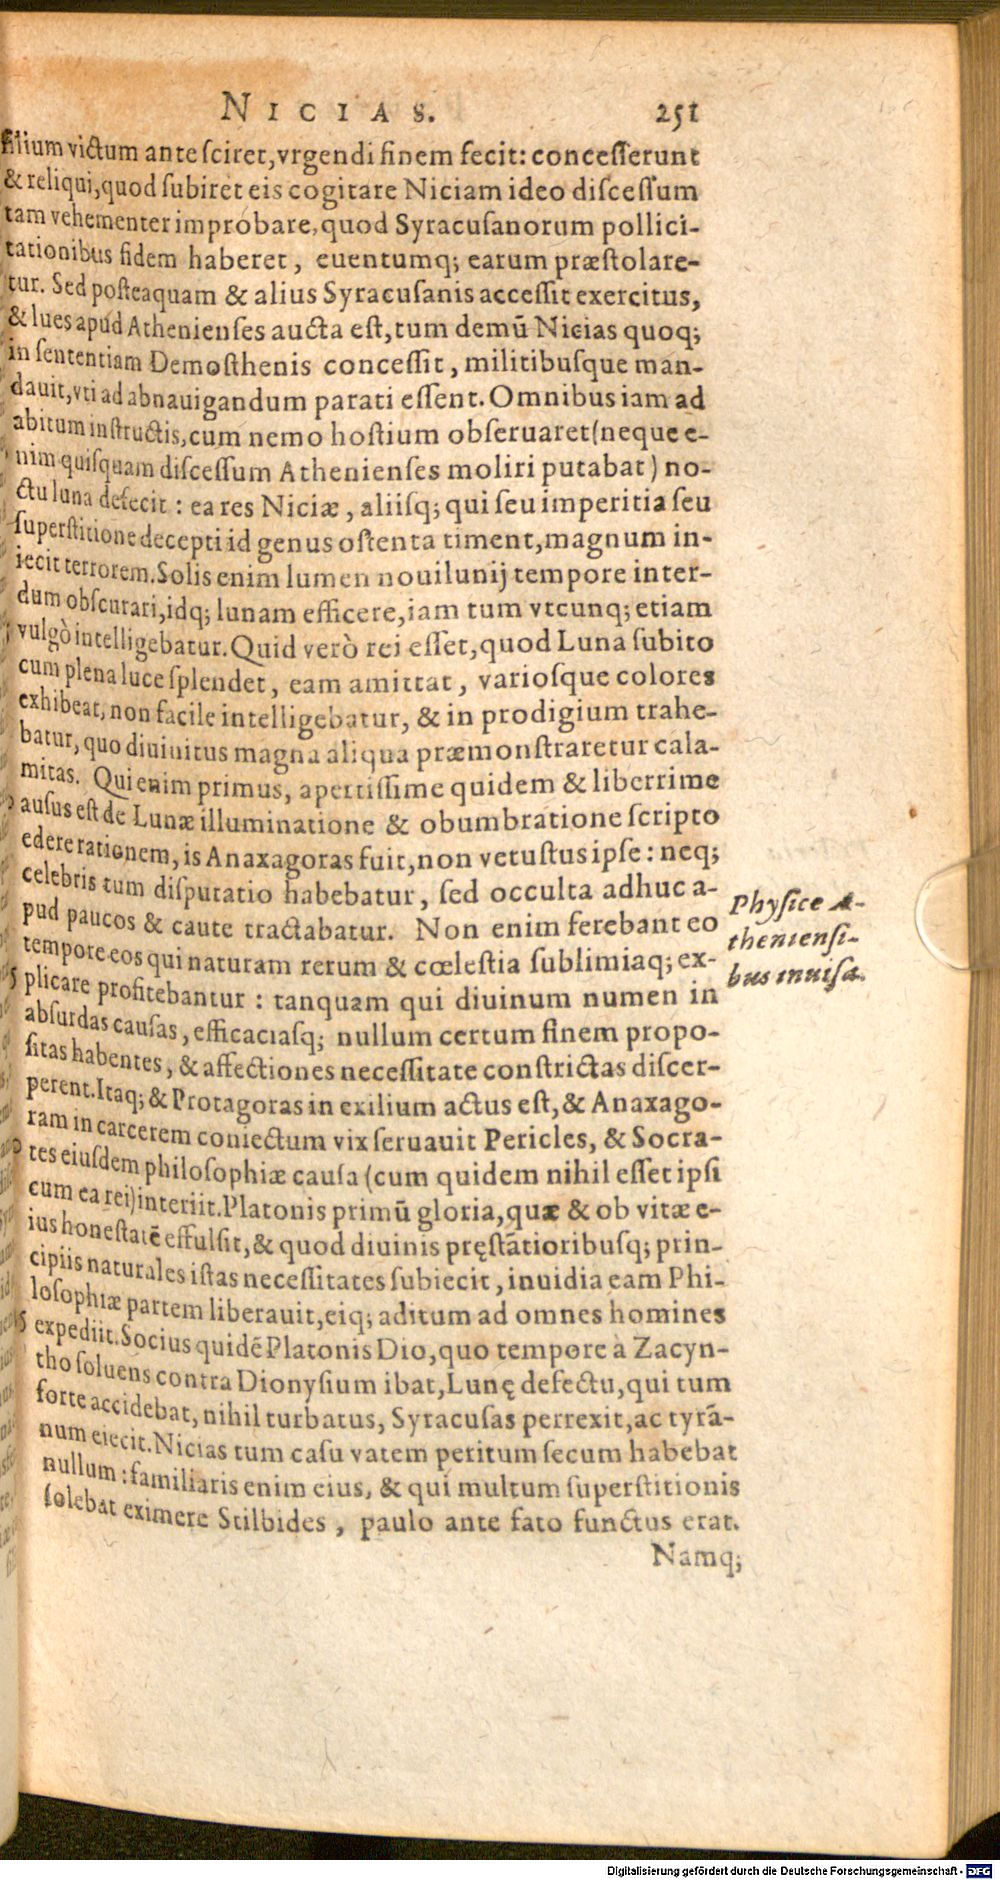 NICIAS. 251
silium victum ante sciret, vrgendi finem fecit: concesserunt
& reliqui, quod subiret eis cogitare Niciam ideo discessum
tam vehementer improbare, quod Syracusanorum pollici-
tationibus fidem haberet, euentumq; earum præstolare-
tur. Sed posteaquam & alius Syracusanis accessit exercitus,
& lues apud Athenienses aucta est, tum demū Nicias quoq;
in sententiam Demosthenis concessit, militibusque man-
dauit, vti ad abnauigandum parati essent. Omnibus iam ad
abitum instructis, cum nemo hostium obseruaret (neque e-
nim quisquam discessum Athenienses moliri putabat) no-
ctu luna defecit: ea res Niciæ, aliisq; qui seu imperitia seu
superstitione decepti id genus ostenta timent, magnum in-
iecit terrorem. Solis enim lumen nouilunij tempore inter-
dum obscurari, idq; lunam efficere, iam tum vtcunq; etiam
vulgò intelligebatur. Quid verò rei esset, quod Luna subito
cum plena luce splendet, eam amittat, variosque colores
exhibeat, non facile intelligebatur, & in prodigium trahe-
batur, quo diuinitus magna aliqua præmonstraretur cala-
mitas. Qui enim primus, apertissime quidem & liberrime
ausus est de Lunæ illuminatione & obumbratione scripto
edere rationem, is Anaxagoras fuit, non vetustus ipse: neq;
celebris tum disputatio habebatur, sed occulta adhuc a-
pud paucos & caute tractabatur. Non enim ferebant eo
tempore eos qui naturam rerum & cœlestia sublimiaq; ex-
plicare profitebantur: tanquam qui diuinum numen in
absurdas causas, efficaciasq; nullum certum finem propo-
sitas habentes, & affectiones necessitate constrictas discer-
perent. Itaq; & Protagoras in exilium actus est, & Anaxago-
ram in carcerem coniectum vix seruauit Pericles, & Socra-
tes eiusdem philosophiæ causa (cum quidem nihil esset ipsi
cum ea rei) interiit. Platonis primū gloria, quæ & ob vitæ e-
ius honestatē effulsit, & quod diuinis pręstātioribusq; prin-
cipiis naturales istas necessitates subiecit, inuidia eam Phi-
losophiæ partem liberauit, eiq; aditum ad omnes homines
expediit. Socius quidē Platonis Dio, quo tempore à Zacyn-
tho soluens contra Dionysium ibat, Lunę defectu, qui tum
forte accidebat, nihil turbatus, Syracusas perrexit, ac tyrā-
num eiecit. Nicias tum casu vatem peritum secum habebat
nullum: familiaris enim eius, & qui multum superstitionis
solebat eximere Stilbides, paulo ante fato functus erat.
Namq;
Physice A-
theniensi-
bus inuisa.
Digitalisierung gefördert durch die Deutsche Forschungsgemeinschaft - DFG